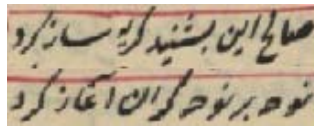 صالح این بشنید گریه ساز کرد
نوحه بر نوحه گران آغاز کرد